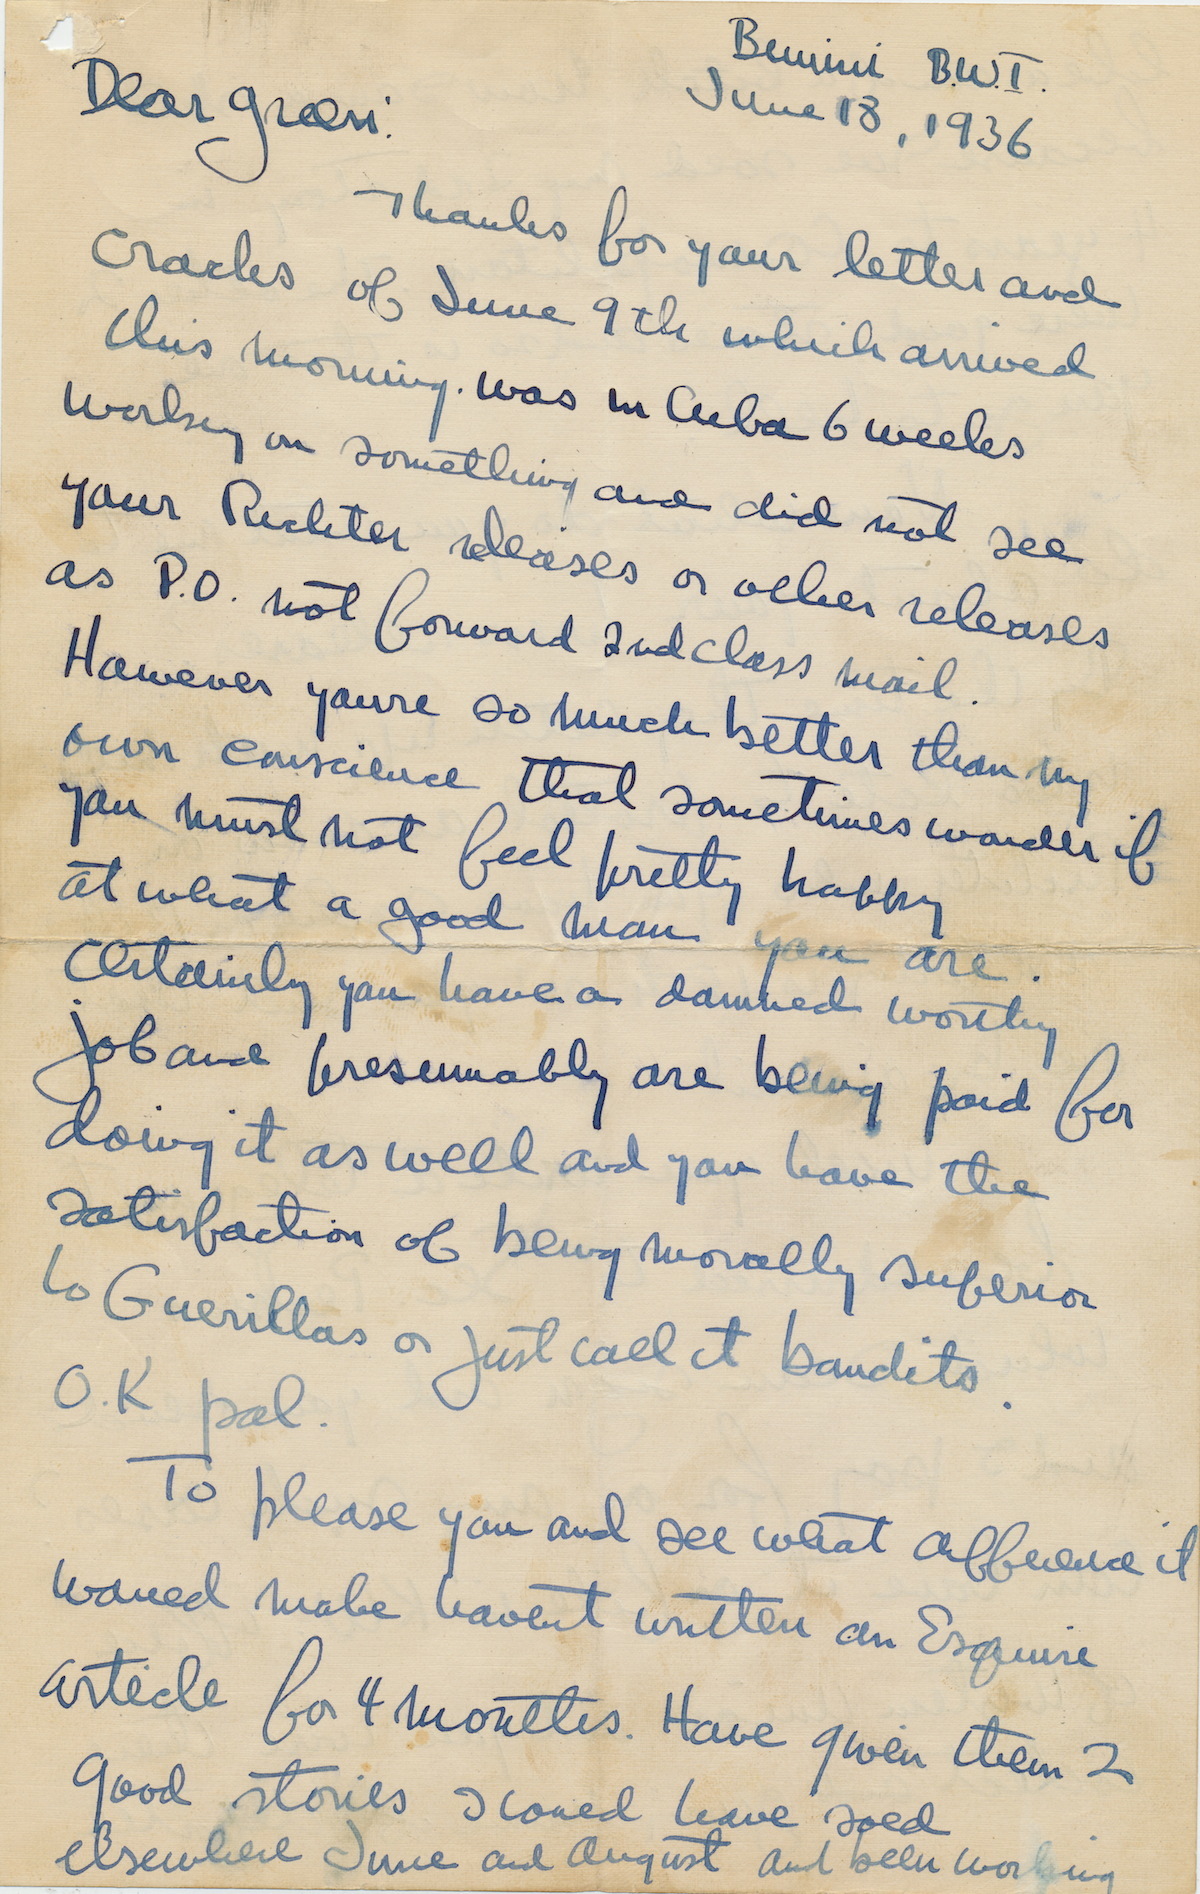 Bimini B.W.I.
June 18, 1936
Dear
Thanks for your letter and
cracks of June 9th which arrived
this morning. was in Cuba 6 weeks
working on something and did not see
your Richter releases or other releases
as P.O. not forward 2nd class mail.
However youre so much better than my
own conscience that sometimes wonder if
you must not feel pretty happy
at what a good man you are.
Certainly you have a damned worthy
job and presumably are being paid for
doing it as well and you have the
satisfaction of being morally superior
to Guerillas or just call it bandits.
O.K pal.
To please you and see what difference it
would make havent written an Esquire
article for 4 months. Have given them 2
good stories I could have sold
elsewhere June and August and been working